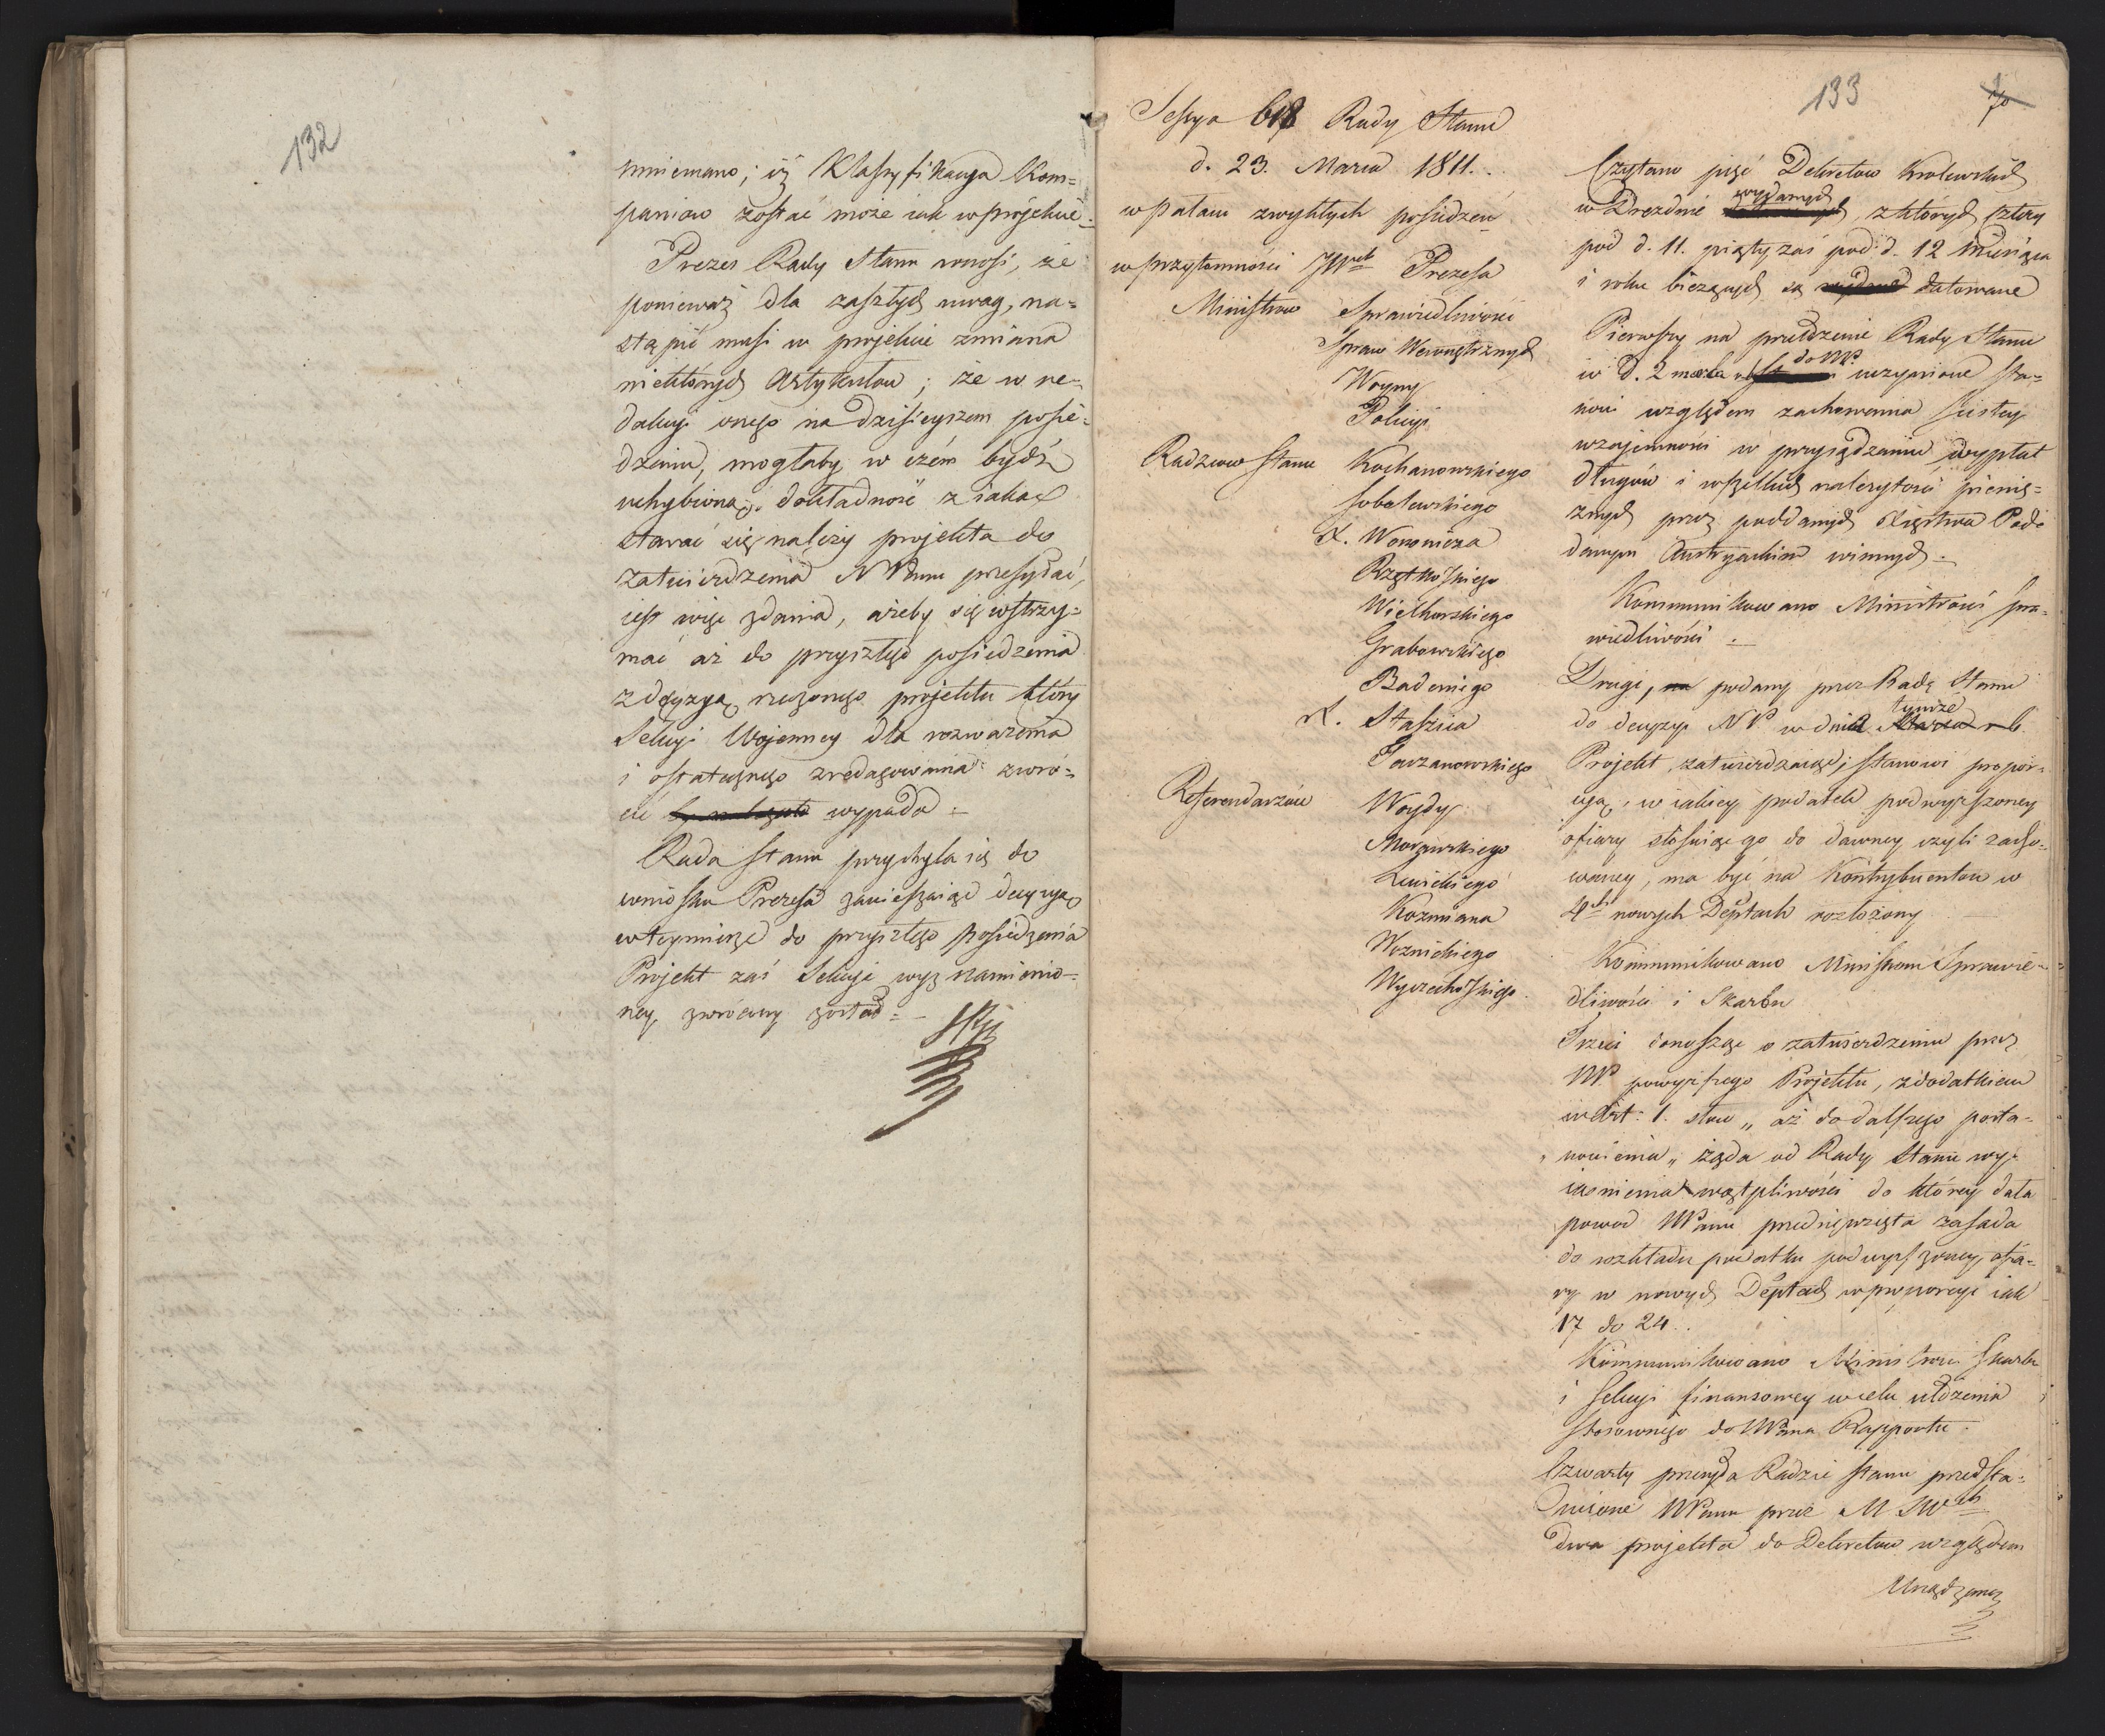 132
mniemano, iż Klassyfikacya Kom=
paniow zostać może iak w projekcie.
Prezes Rady Stanu wnosi, że
ponieważ dla zaszłych uwag, na=
stąpić musi w projekcie zmiana
niektórych Artykułow; że w re=
dakcyi onego na dzisieyszem posie=
dzeniu, mogłaby w czém bydź
uchybiona dokładność z iaką
starać się należy projekta do
zatwierdzenia NPanu przesyłać,
iest więc zdania, ażeby się wstrzy=
mać aż do przyszłego posiedzenia
z decyzyą rzeczonego projektu który
Sekcyi Wojenney dla rozważenia
i ostatecznego zredagowania zwró=
cić wypada
Rada Stanu przychyla się do
wniosku Prezesa zawieszaiąc decyzyą
w tey mierze do przyszłego posiedzenia
Projekt zaś Sekcyi wyz namienio=
ney, zwrócony został
133
70
Sessya 618 Rady Stanu
d. 23. Marca 1811.
w pałacu zwykłych posiedzeń
w przytomności JW Prezesa
Ministrow Sprawiedliwości
Spraw Wewnętrznych
Woyny
Policyi
Radzcow Stanu Kochanowskiego
Sobolewskiego
X. Woronicza
Rzętkoskiego
Wielhorskiego
Grabowskiego
Badeniego
X. Staszica
Gorzanowskiego
Referendarzów Woydy
Morawskiego
Lewickiego
Kozmiana
Woznickiego
Wyczechoskiego
Czytano pięć Dekretow Krolewskich
wydanych
w Dreznie, z których cztery
pod d. 11. piąty zaś pod d. 12 Miesiąca
i roku bieżących są datowane
Pierwszy na przełożenie Rady Stanu
do NP.
w d. 2 marca uczynione sta=
nowi względem zachowania ścisłey
wzajemności w przysądzaniu wypłat
długów i wszelkich należytości pienię=
żnych przez poddanych Xięstwa Pod=
danym Austryackim winnych
Kommunikowano Ministrowi Spra=
wiedliwości
Drugi, podany przez Radę Stanu
tymże
do decyzyi NP w dniu
Projekt, zatwierdzaiąc, stanowi propor=
cyą, w iakiey podatek podwyższoney
ofiary stosuiąc go do dawney czyli zacho=
waney, ma być na Kontrybuentow w
4ch nowych Deptach rozłożony
Kommunikowano Ministrom Sprawie=
dliwości i Skarbu
Trzeci donosząc o zatwierdzeniu przez
NP. powyższego Projektu, z dodatkiem
w Art: 1. słow „ aż do dalszego posta=
„ nowienia „ żąda od Rady Stanu wy=
iaśnienia wątpliwości do którey dała
powod NPanu przedsięwzięta zasada
do rozkładu podatku podwyższoney ofia=
ry w nowych Deptach w proporcyi iak
17 do 24.
Kommunikowano Ministrowi Skarbu
i Sekcyi finansowey w celu ułożenia
stosownego do NPana Rapportu.
Czwarty przesyła Radzie Stanu przedsta=
wione NPanu przez M SWch
dwa projekta do Dekretow względem
Urządzenia